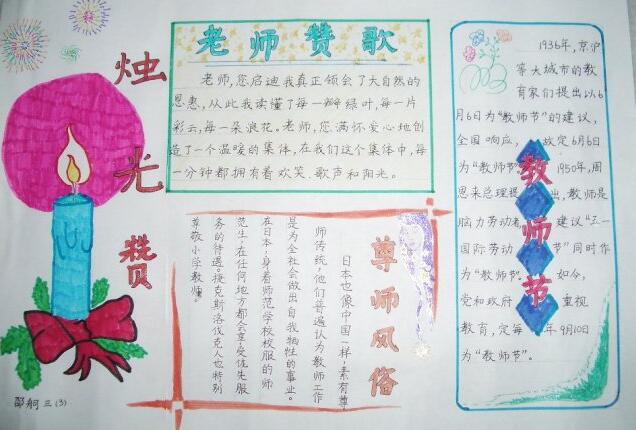 烛光赞
老师赞歌
老师,您启迪我真正领会了大自然的
恩惠,从此我读懂了每一瓣绿叶,每一片
彩云,每一朵浪花。老师,您满怀爱心地创
造了一个温暖的集体,在我们这个集体中,每
一分钟都拥有着欢笑、歌声和阳光。
尊师风俗
日本也像中国一样,素有尊
师传统,他们普遍认为教师工作
是为全社会做出自我牺牲的事业。
在日本,身着师范学校校服的师
范生,在任何地方都会享受优先服
务的待遇。捷克斯洛伐克人也特别
尊敬小学教师。
教师节
1936年,京沪
等大城市的教
育家们提出以6
月6日为“教师节”的建议,
全国响应,故定6月6日
为“教师节”1950年,周
恩来总理提出,教师是
脑力劳动者建议“五一
国际劳动节”同时作
为“教师节”如今,
党和政府重视
教育,定每年9月10日
为“教师节”。
邵舸三(3)